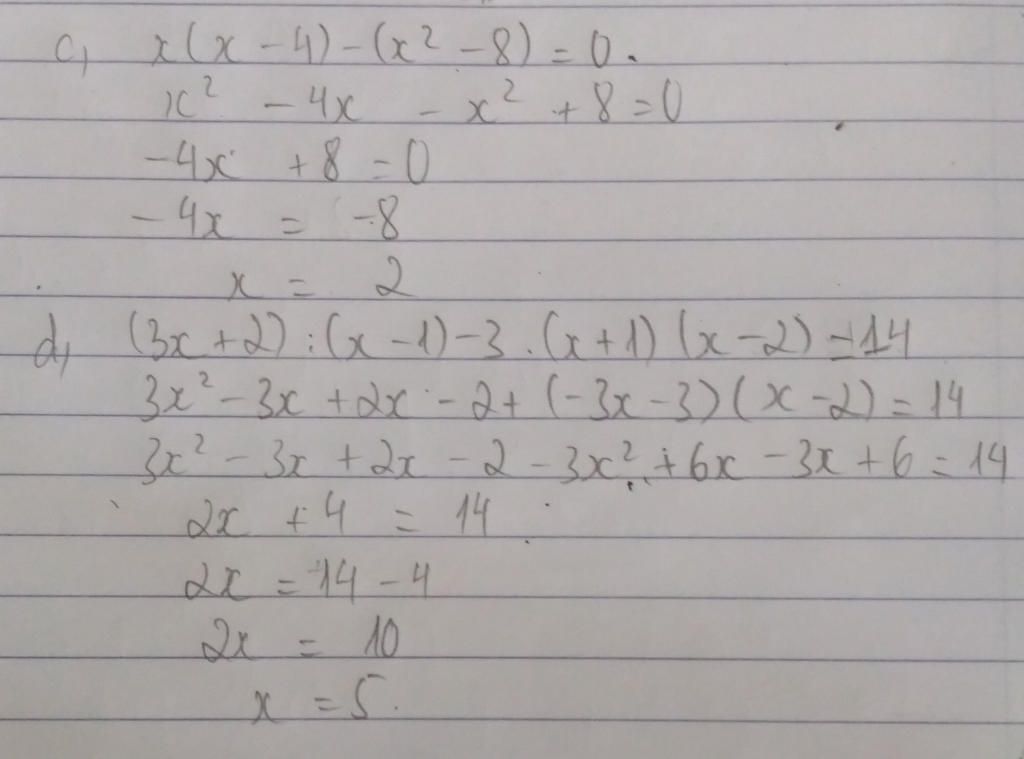 c, x(x - 4) - (x² - 8) = 0.
x² - 4x - x² + 8 = 0
-4x + 8 = 0
-4x = -8
x = 2
d, (3x + 2) : (x - 1) - 3 . (x + 1) (x - 2) = 14
3x² - 3x + 2x - 2 + (-3x - 3) (x - 2) = 14
3x² - 3x + 2x - 2 - 3x² + 6x - 3x + 6 = 14
2x + 4 = 14
2x = 14 - 4
2x = 10
x = 5.